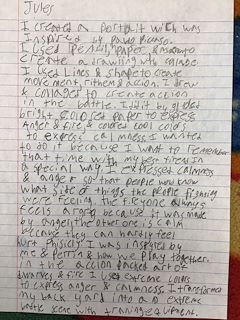 Jules
I created a portrait witch was
inspired by pablo Picasso.
I used Pencils, paper, &
create a drawing with collage
I used Lines & shape to create
movement, rithem & action. I drew
& collaged to create action
in the battle. I did it by glided
bright colored paper to express
Anger & fire & colored cool colors
to express calmness. I wanted
to do it because I want to remember
that time with my
a special way. I expressed calmness
& anger so that people would know
what side of things the people fighting
were feeling. the fire one always
feels angry because it was made
by anger, the other one is calm
because they can hardly feel
hurt physicly. I was inspired by
me & Perrin & how we play together.
in the action packed art of
darkness & fire I used extreme colors
to express anger & calmness. I transformed
my back yard into an extreme
battle scene with training equipment.